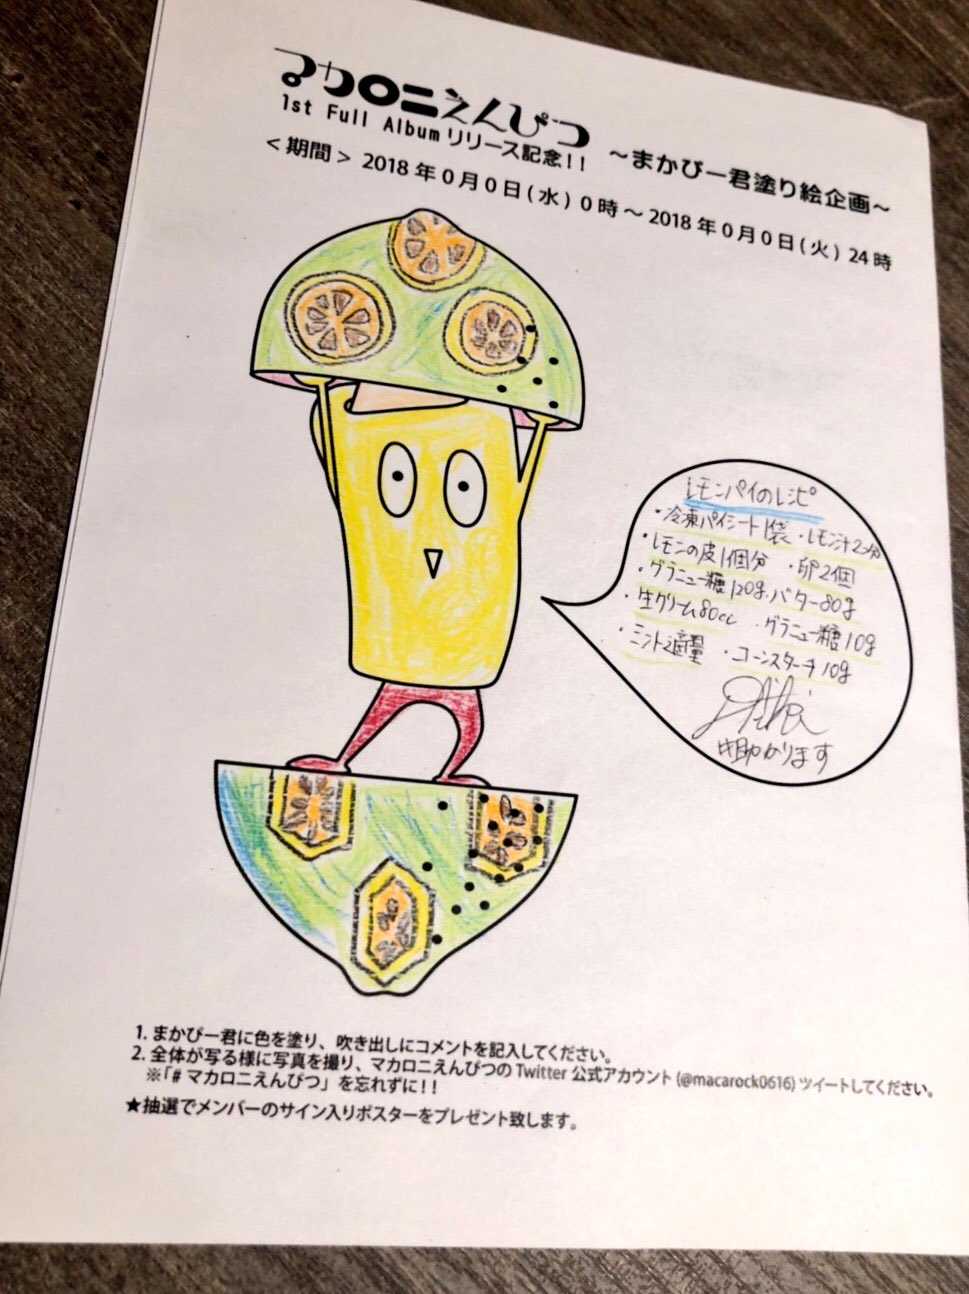 マカロニえんぴつ
1st Full Albumリリース記念!! ～まかぴー君塗り絵企画～
<期間> 2018年0月0日(水)0時～2018年0月0日(火)24時
レモンパイのレシピ
・冷凍パイシート1袋 ・レモン汁2コ分
・レモンの皮1個分 ・卵2個
・グラニュー糖120g・バター80g
・生クリーム80cc ・グラニュー糖10g
・ミント適量 ・コーンスターチ10g
助かります
1. まかぴー君に色を塗り、吹き出しにコメントを記入してください。
2. 全体が写る様に写真を撮り、マカロニえんぴつのTwitter公式アカウント(@macarock0616)ツイートしてください。
※「#マカロニえんぴつ」を忘れずに!!
★抽選でメンバーのサイン入りポスターをプレゼント致します。